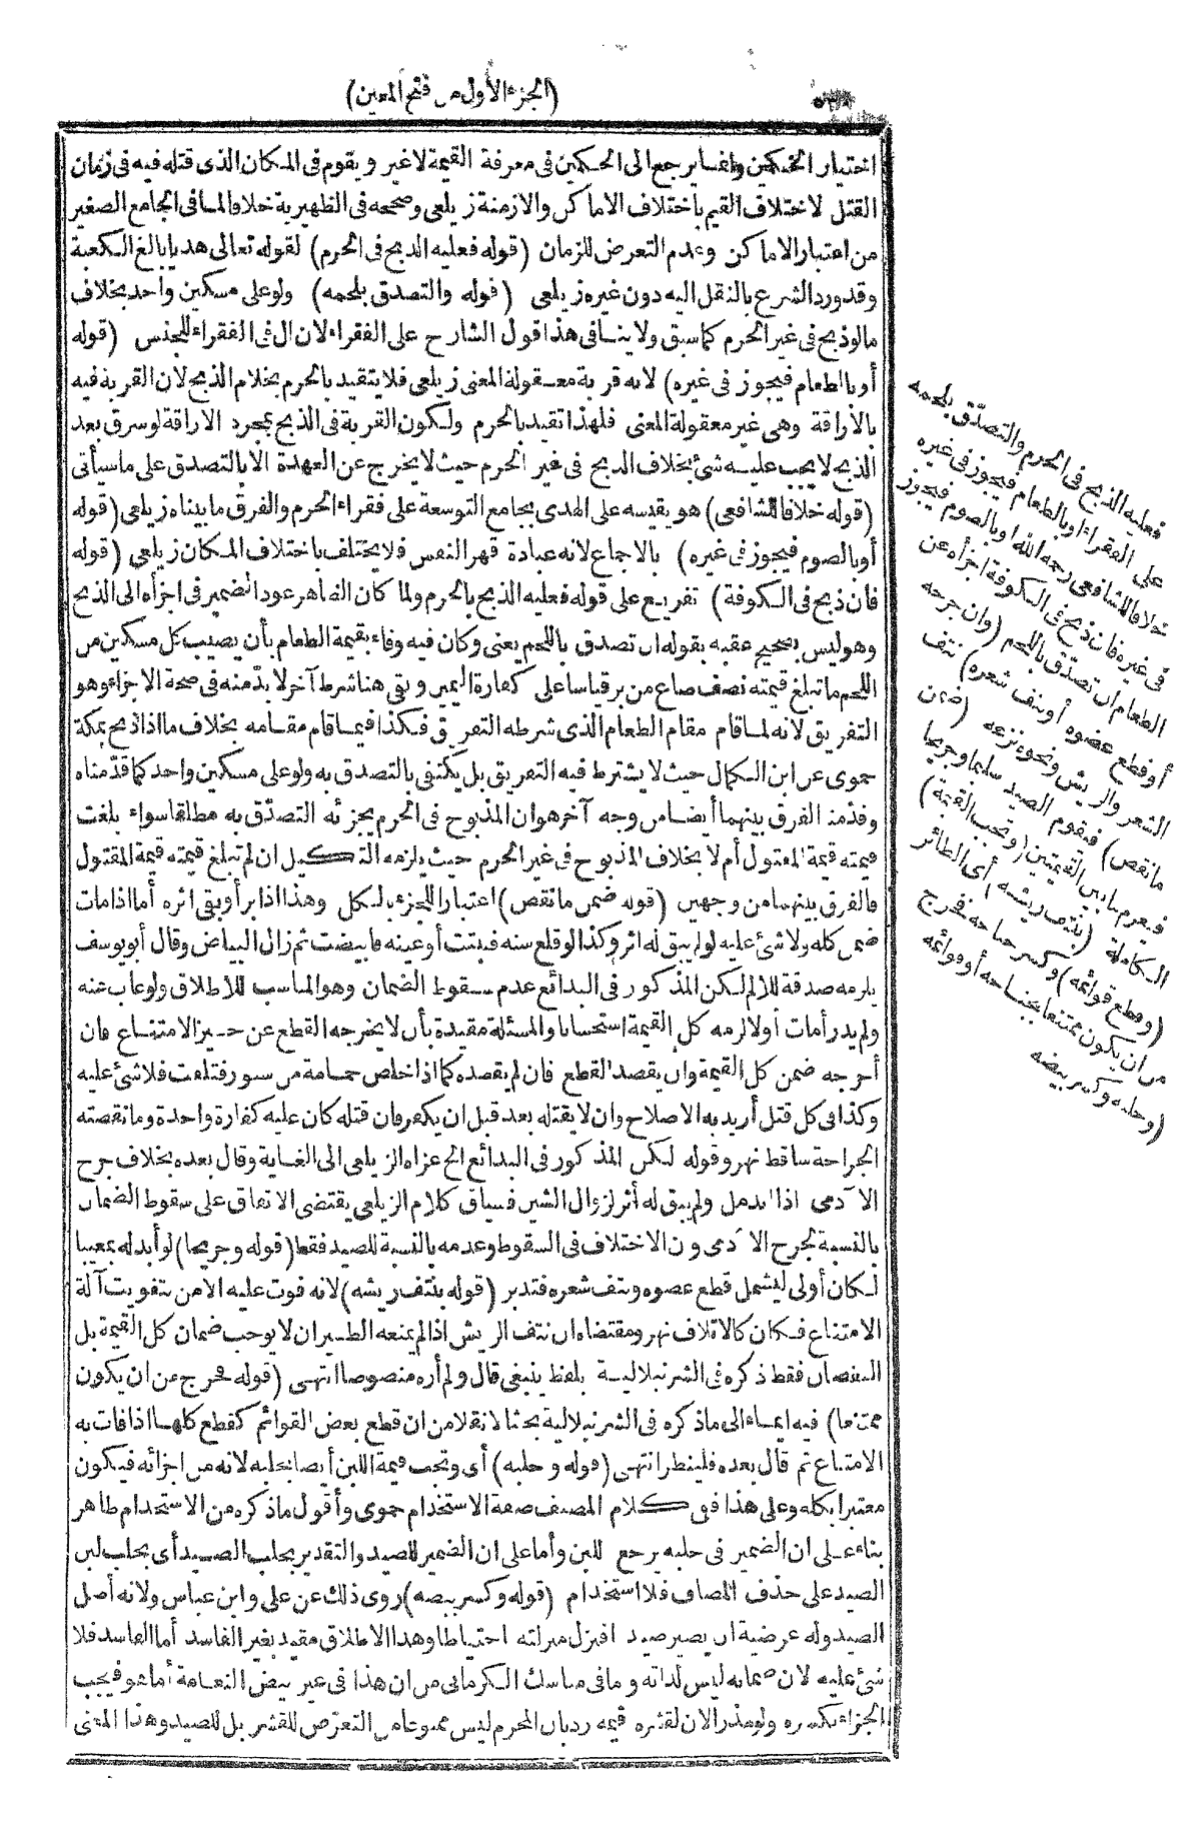 (الجزء الأول من فتح المعين)
اختيار الحكمين وإنما يرجع الى الحكمين فى معرفة القيمة لاغير ويقوم فى المكان الذى قتله فيه فى زمان
القتل لاختلاف القيم باختلاف الاماكن والازمنة زيلعى وصححه فى الظهيرية خلافا لما فى الجامع الصغير
من اعتبار الاماكن وعدم التعرض للزمان (قوله فعليه الذبح فى الحرم) لقوله تعالى هديا بالغ الكعبة
وقد ورد الشرع بالنقل اليه دون غيره زيلعى (قوله والتصدق بلحمه) ولو على مسكين واحد بخلاف
مالو ذبح فى غير الحرم كما سبق ولا ينافى هذا قول الشارح على الفقراء لان ال فى الفقراء للجنس (قوله
أو بالطعام فيجوز فى غيره) لانه قربة معقولة المعنى زيلعى فلا يتقيد بالحرم بخلاف الذبح لان القربة فيه
بالاراقة وهى غير معقولة المعنى فلهذا تقيد بالحرم ولكون القربة فى الذبح بمجرد الاراقة لو سرق بعد
الذبح لا يجب عليه شئ بخلاف الذبح فى غير الحرم حيث لا يخرج عن العهدة الا بالتصدق على ماسيأتى
(قوله خلافا للشافعى) هو يقيسه على الهدى بجامع التوسعة على فقراء الحرم والفرق ما بيناه زيلعى (قوله
أو بالصوم فيجوز فى غيره) بالاجماع لانه عبادة قهر النفس فلا يختلف باختلاف المكان زيلعى (قوله
فان ذبح فى الكوفة) تفريع على قوله فعليه الذبح بالحرم ولما كان الظاهر عود الضمير فى اجزأه الى الذبح
وهو ليس بصحيح عقبه بقوله ان تصدق باللحم يعنى وكان فيه وفاء بقيمة الطعام بأن يصيب كل مسكين من
اللحم ما تبلغ قيمته نصف صاع من بر قياسا على كفارة اليمين وبقى هنا شرط آخر لا بد منه فى صحة الاجزاء وهو
التفريق لانه لما قام مقام الطعام الذى شرطه التفريق فكذا فيما قام مقامه بخلاف ما اذا ذبح بمكة
حموى عن ابن الكمال حيث لا يشترط فيه التفريق بل يكتفى بالتصدق به ولو على مسكين واحد كما قدمناه
وقدمنا الفرق بينهما أيضا من وجه آخر هو ان المذبوح فى الحرم يجزئه التصدق به مطلقا سواء بلغت
قيمته قيمة المقتول أم لا بخلاف المذبوح فى غير الحرم حيث يلزمه التكميل ان لم تبلغ قيمته قيمة المقتول
فالفرق بينهما من وجهين (قوله ضمن ما نقص) اعتبارا للجزء بالكل وهذا اذا برأ وبقى اثره أما اذا مات
ضمن كله ولا شئ عليه لو لم يبق له اثر وكذا لو قلع سنه فنبتت أو عينه فابيضت ثم زال البياض وقال أبو يوسف
يلزمه صدقة للالم لكن المذكور فى البدائع عدم سقوط الضمان وهو المناسب للاطلاق ولو غاب عنه
ولم يدر أمات أو لا لزمه كل القيمة استحسانا والمسئلة مقيدة بأن لا يخرجه القطع عن حيز الامتناع فان
أخرجه ضمن كل القيمة وان يقصد القطع فان لم يقصده كما اذا خلص حمامة من سنور فتلفت فلا شئ عليه
وكذا فى كل قتل أريد به الاصلاح وان لا يقتله بعد قبل ان يكفر فان قتله كان عليه كفارة واحدة وما نقصته
الجراحة ساقط نهر وقوله لكن المذكور فى البدائع الخ عزاه الزيلعى الى الغاية وقال بعده بخلاف جرح
الآدمى اذا اندمل ولم يبق له أثر لزوال الشين فسياق كلام الزيلعى يقتضى الاتفاق على سقوط الضمان
بالنسبة لجرح الآدمى وان الاختلاف فى السقوط وعدمه بالنسبة للصيد فقط (قوله وجريحا) لو أبدله بمعيبا
لكان أولى ليشمل قطع عضوه ونتف شعره فتدبر (قوله بنتف ريشه) لانه فوت عليه الامن بتفويت آلة
الامتناع فكان كالاتلاف نهر ومقتضاه ان نتف الريش اذا لم يمنعه الطيران لا يوجب ضمان كل القيمة بل
النقصان فقط ذكره فى الشرنبلالية بلفظ ينبغى قال ولم أره منصوصا انتهى (قوله فخرج من ان يكون
ممتنعا) فيه ايماء الى ما ذكره فى الشرنبلالية بحثا لا نقلا من ان قطع بعض القوائم كقطع كلها اذا فات به
الامتناع ثم قال بعده فلينظر انتهى (قوله وحلبه) أى وتجب قيمة اللبن أيضا بحلبه لانه من اجزائه فيكون
معتبرا بكله وعلى هذا ففى كلام المصنف صفة الاستخدام حموى وأقول ما ذكره من الاستخدام ظاهر
بناء على ان الضمير فى حلبه يرجع للبن وأما على ان الضمير للصيد والتقدير بحلب الصيد أى بحلب لبن
الصيد على حذف المضاف فلا استخدام (قوله وكسر بيضه) روى ذلك عن على وابن عباس ولانه أصل
الصيد وله عرضية ان يصير صيدا فنزل منزلته احتياطا وهذا الاطلاق مقيد بغير الفاسد أما الفاسد فلا
شئ عليه لان ضمانه ليس لذاته وما فى مناسك الكرمانى من ان هذا فى غير بيض النعامة أما هو فيجب
الجزاء بكسره ولو مذرا لان لقشره قيمة رد بان المحرم ليس ممنوعا من التعرض للقشر بل للصيد وهذا المعنى
فعليه الذبح فى الحرم والتصدق بلحمه
على الفقراء أو بالطعام فيجوز فى غيره
خلافا للشافعى رحمه الله أو بالصوم فيجوز
فى غيره فان ذبح فى الكوفة اجزأه عن
الطعام ان تصدق باللحم (وان جرحه
أو قطع عضوه أو نتف شعره) نتف
الشعر والريش ونحوه نزعه (ضمن
ما نقص) فيقوم الصيد سليما وجريحا
فيغرم ما بين القيمتين (وتجب القيمة)
الكاملة (بنتف ريشه) أى الطائر
(وقطع قوائمه) وكسر جناحه فخرج
من ان يكون ممتنعا بجناحه أو قوائمه
(وحلبه وكسر بيضه